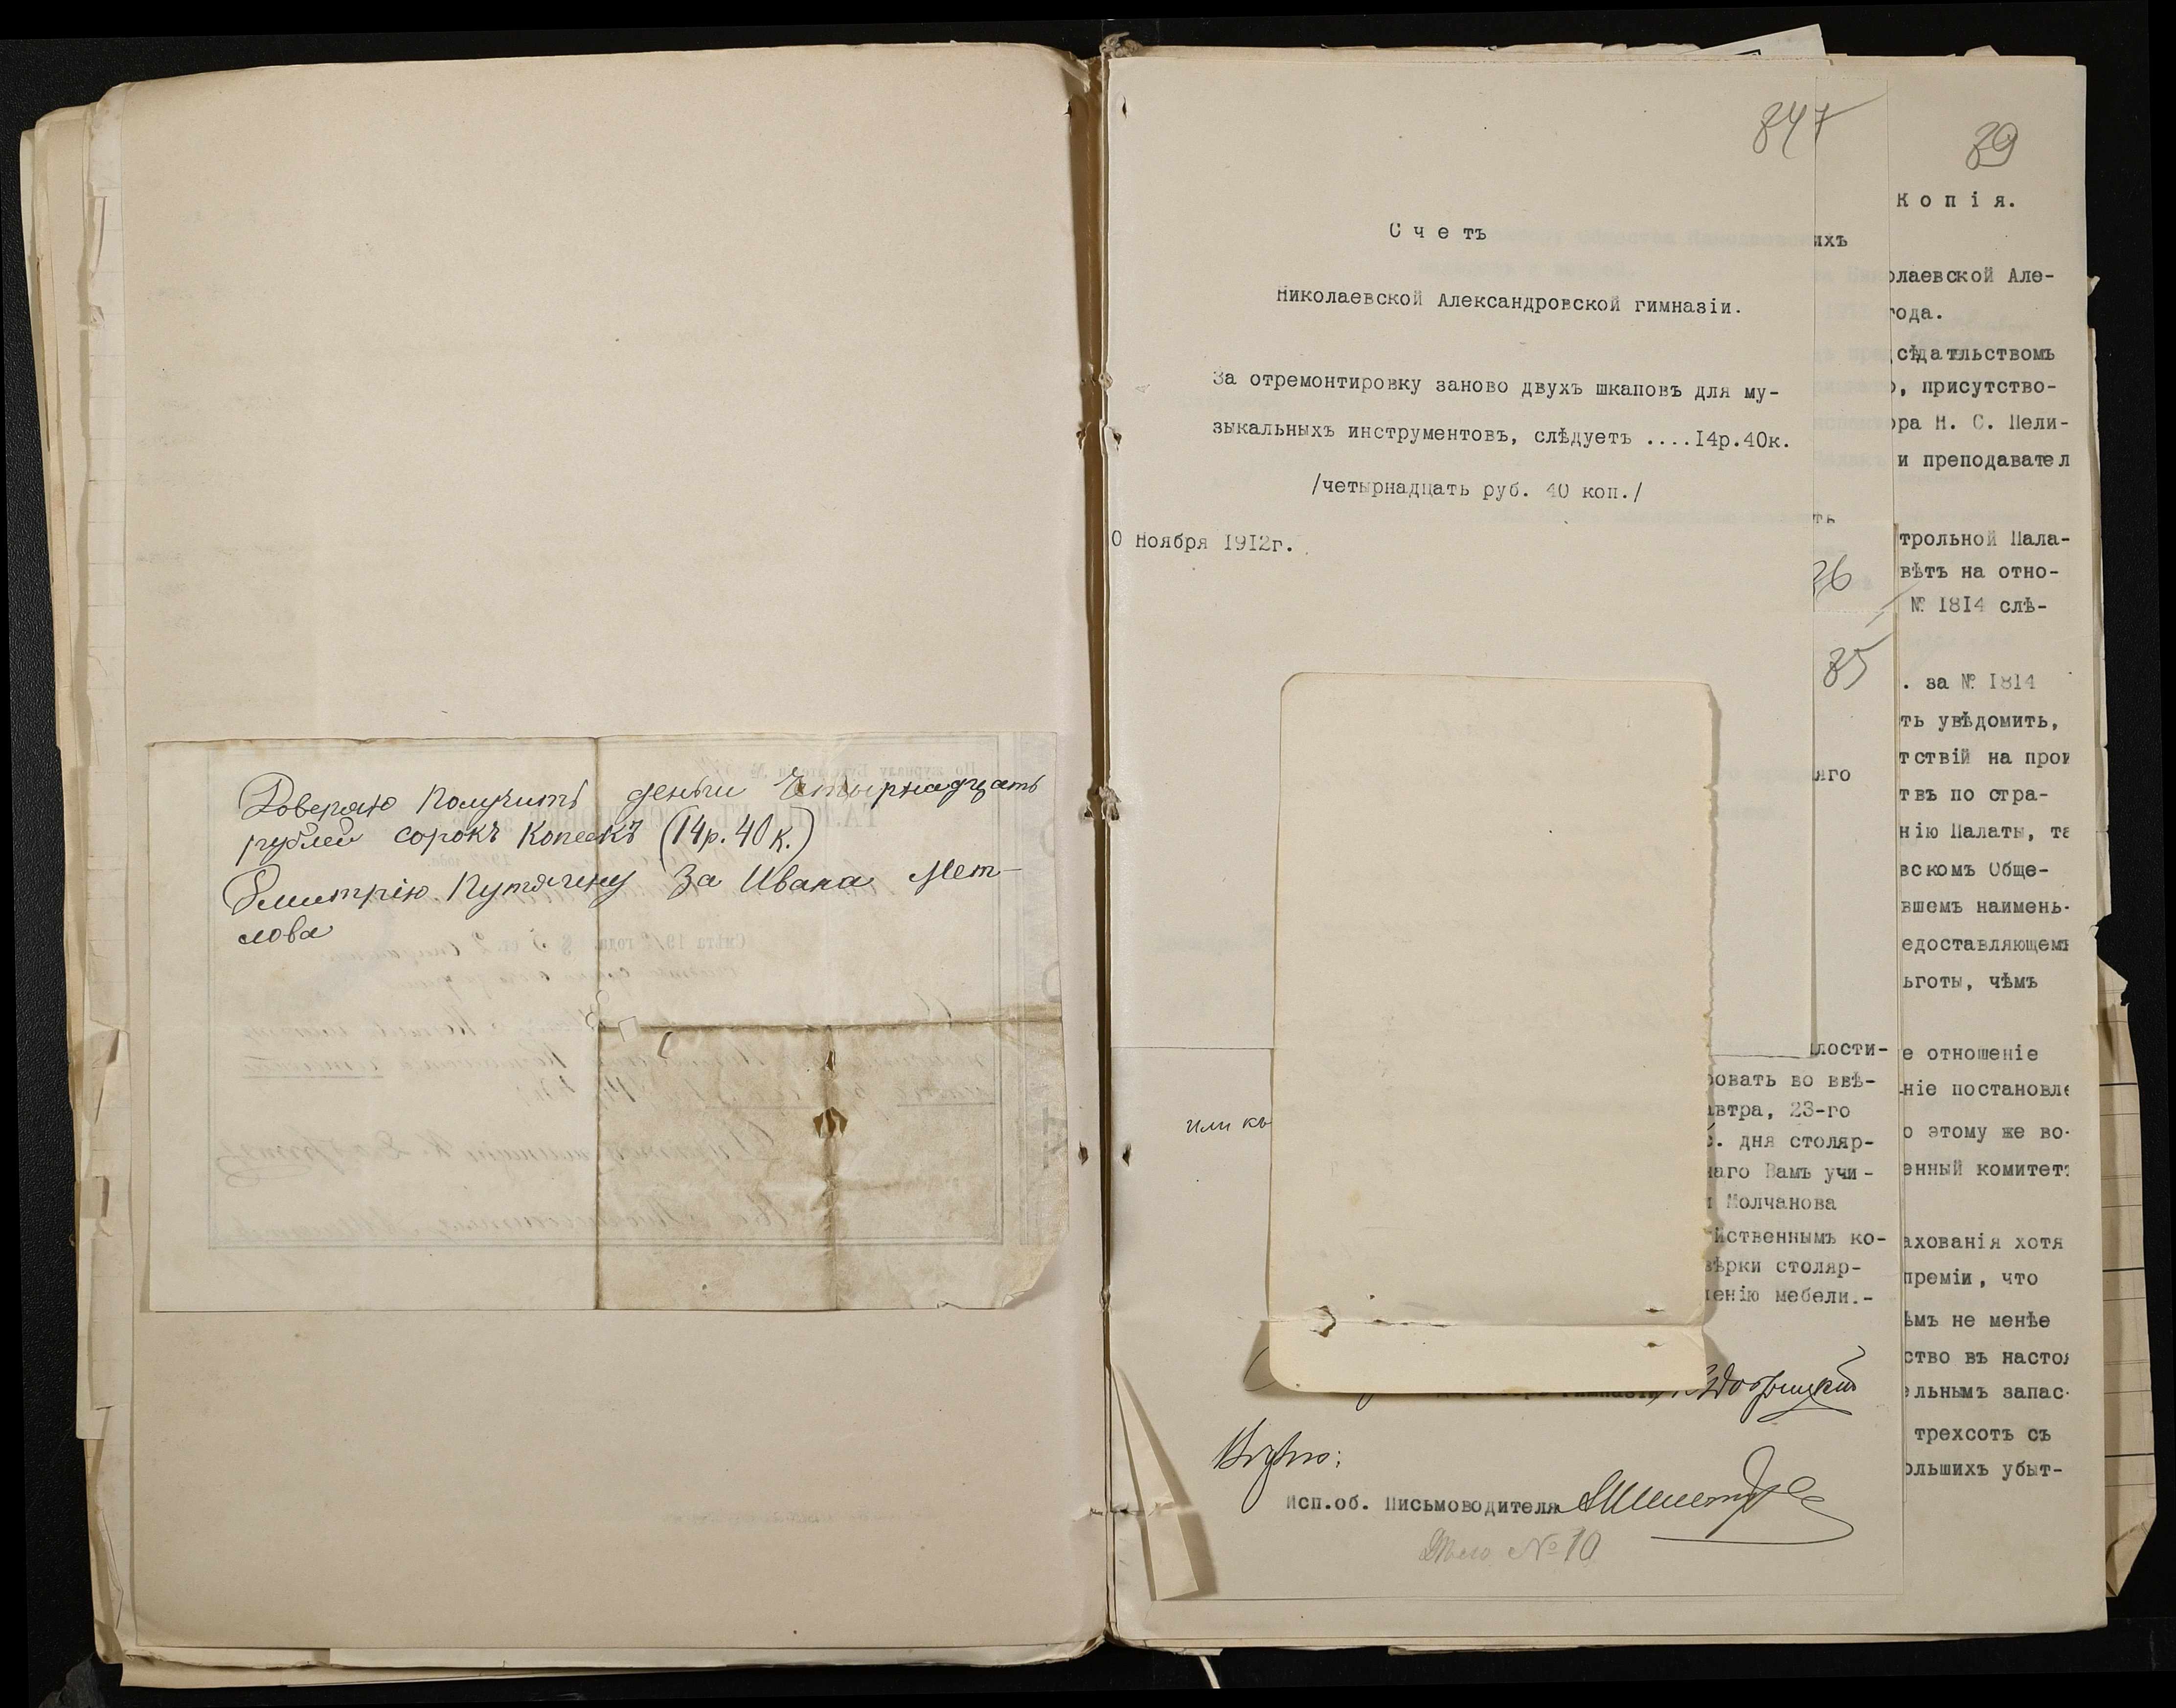 Доверяю Получить деньги Четырнадцать
рублей сорокъ Копеекъ (14р. 40 к.)
Дмитрію Путячену За Ивана Мет-
лова
847
Счетъ
Николаевской Александровской гимназіи.
За отремонтировку заново двухъ шкаповъ для му-
зыкальныхъ инструментовъ, слѣдуетъ ....I4р.40к.
/четырнадцать руб. 40 коп./
0 Ноября I9I2г.
ихъ
26
35
яго
или къ
лости-
ровать во ввѣ-
автра, 23-го
с. дня столяр-
наго Вамъ учи-
и Молчанова
йственнымъ ко-
вѣрки столяр-
ленію мебели.-
гимназіи
Вѣрно:
Исп.об. Письмоводителя
Дѣло № 10
39
Копія.
олаевской Але-
года.
сѣдательствомъ
о, присутство-
ора Н. С. Пели-
и преподавател
трольной Пала-
вѣтъ на отно-
№ I8I4 слѣ-
. за № I8I4
ть увѣдомить,
тствій на прои
твъ по стра-
нію Палаты, та
вскомъ Обще-
вшемъ наимень-
едоставляющемъ
ьготы, чѣмъ
е отношеніе
ніе постановле
о этому же во-
енный комитетъ
ахованія хотя
преміи, что
ѣмъ не менѣе
ство въ настоя
ельнымъ запас-
трехсотъ съ
ольшихъ убыт-